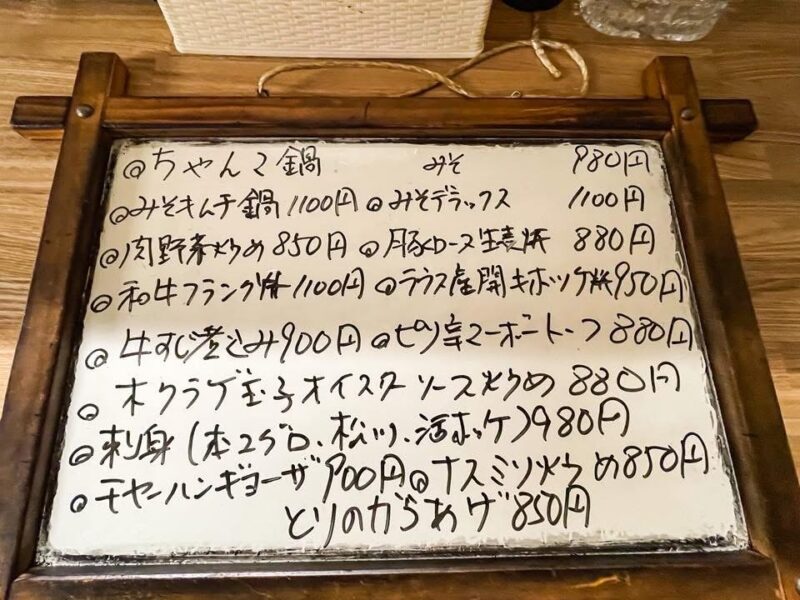 ◎ちゃんこ鍋 みそ 980円
◎みそキムチ鍋1100円 ◎みそデラックス 1100円
◎肉野菜炒め850円 ◎豚ロース生姜焼 880円
◎和牛フランク焼1100円 ◎ラウス産開きホッケ焼950円
◎牛すじ煮込み900円 ◎ピリ辛マーボートーフ880円
◎木クラゲ玉子オイスターソース炒め880円
◎刺身(本マグロ、松川、活ホッケ)980円
◎チャーハンギョーザ900円 ◎ナスミソ炒め850円
とりのからあげ850円